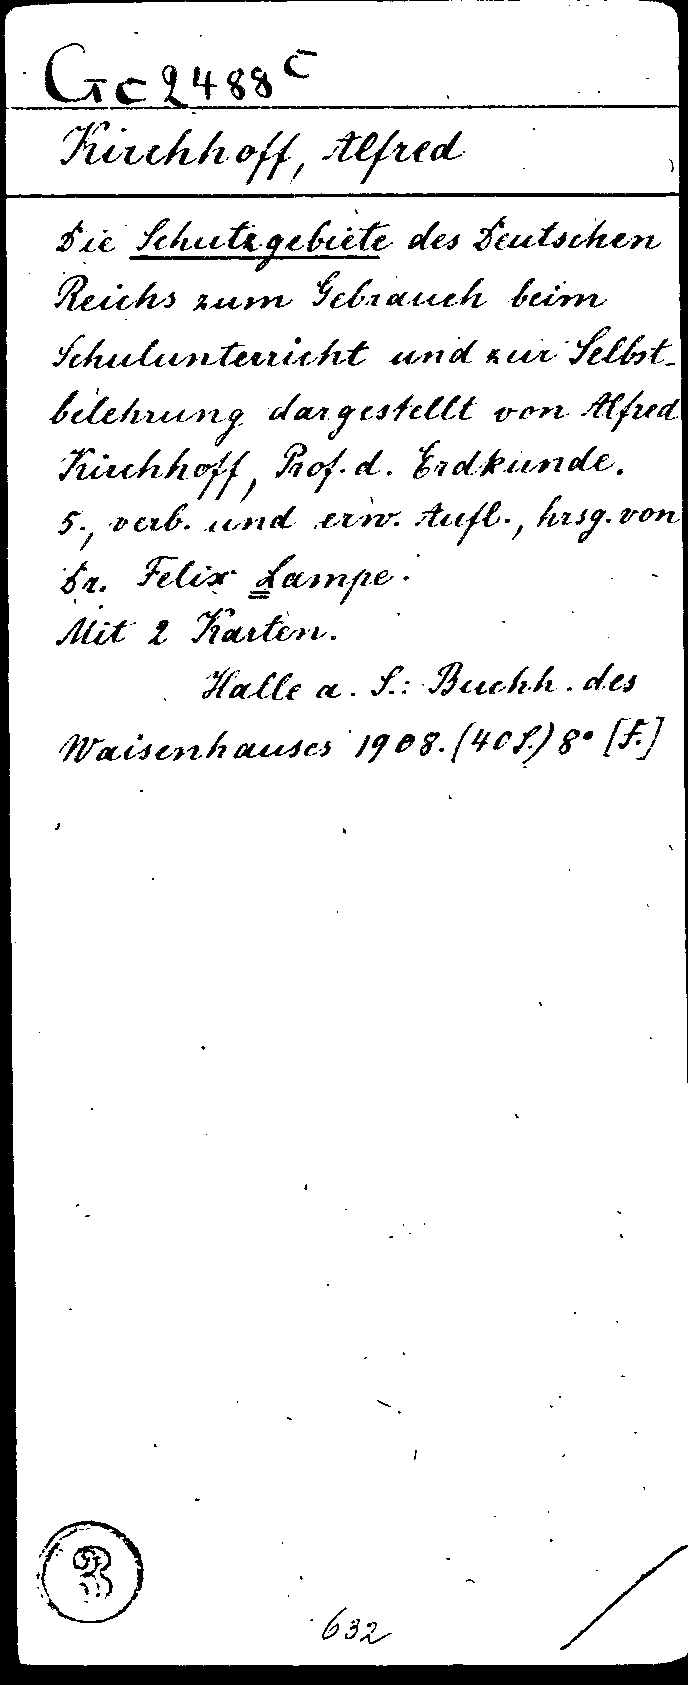 Gc 2488 c
Kirchhoff, Alfred
Die Schutzgebiete des Deutschen
Reichs zum Gebrauch beim
Schulunterricht und zur Selbst-
belehrung dargestellt von Alfred
Kirchhoff, Prof. d. Erdkunde.
5., verb. und erw. Aufl., hrsg. von
Dr. Felix Lampe.
Mit 2 Karten.
Halle a. S.: Buchh. des
Waisenhauses 1908. (40 S.) 8° [F.]
632